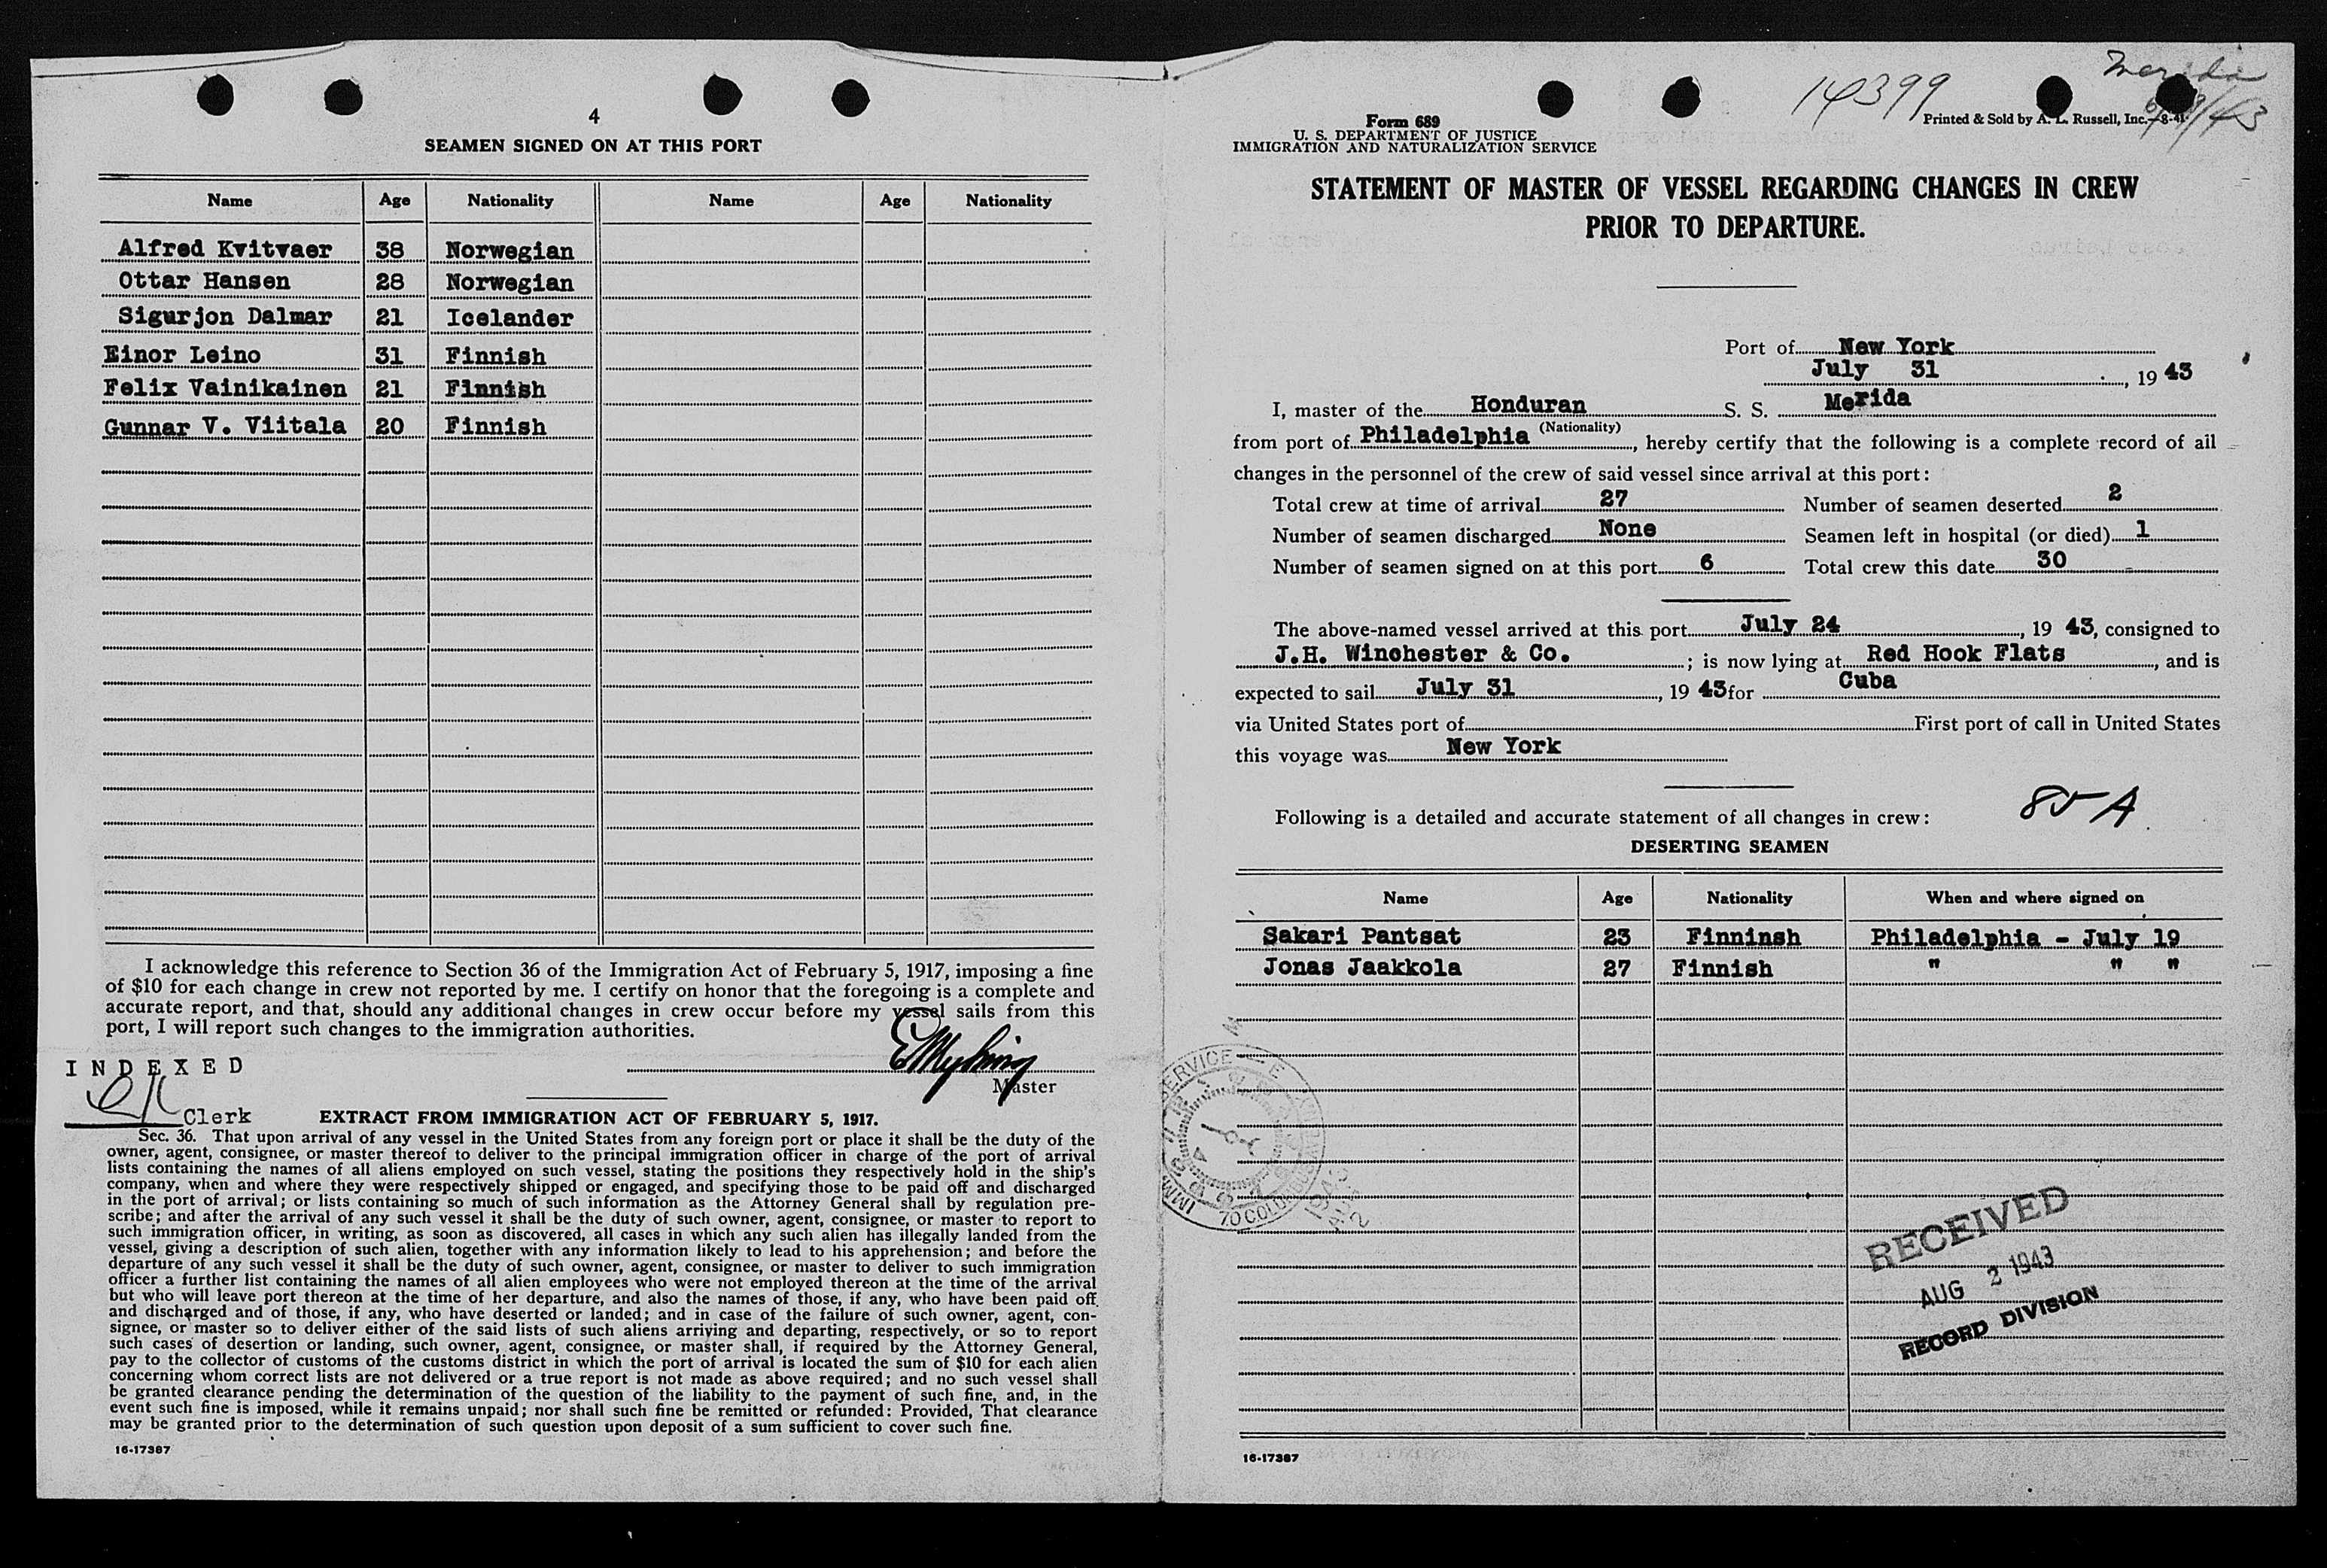 4
SEAMEN SIGNED ON AT THIS PORT
Name Age Nationality Name Age Nationality
Alfred Kvitvaer 38 Norwegian
Ottar Hansen 28 Norwegian
Sigurjon Dalmar 21 Icelander
Einor Leino 31 Finnish
Felix Vainikainen 21 Finnish
Gunnar V. Viitala 20 Finnish
I acknowledge this reference to Section 36 of the Immigration Act of February 5, 1917, imposing a fine
of $10 for each change in crew not reported by me. I certify on honor that the foregoing is a complete and
accurate report, and that, should any additional changes in crew occur before my vessel sails from this
port, I will report such changes to the immigration authorities.
INDEXED
Master
Clerk
EXTRACT FROM IMMIGRATION ACT OF FEBRUARY 5, 1917.
Sec. 36. That upon arrival of any vessel in the United States from any foreign port or place it shall be the duty of the
owner, agent, consignee, or master thereof to deliver to the principal immigration officer in charge of the port of arrival
lists containing the names of all aliens employed on such vessel, stating the positions they respectively hold in the ship's
company, when and where they were respectively shipped or engaged, and specifying those to be paid off and discharged
in the port of arrival; or lists containing so much of such information as the Attorney General shall by regulation pre-
scribe; and after the arrival of any such vessel it shall be the duty of such owner, agent, consignee, or master to report to
such immigration officer, in writing, as soon as discovered, all cases in which any such alien has illegally landed from the
vessel, giving a description of such alien, together with any information likely to lead to his apprehension; and before the
departure of any such vessel it shall be the duty of such owner, agent, consignee, or master to deliver to such immigration
officer a further list containing the names of all alien employees who were not employed thereon at the time of the arrival
but who will leave port thereon at the time of her departure, and also the names of those, if any, who have been paid off
and discharged and of those, if any, who have deserted or landed; and in case of the failure of such owner, agent, con-
signee, or master so to deliver either of the said lists of such aliens arriving and departing, respectively, or so to report
such cases of desertion or landing, such owner, agent, consignee, or master shall, if required by the Attorney General,
pay to the collector of customs of the customs district in which the port of arrival is located the sum of $10 for each alien
concerning whom correct lists are not delivered or a true report is not made as above required; and no such vessel shall
be granted clearance pending the determination of the question of the liability to the payment of such fine, and, in the
event such fine is imposed, while it remains unpaid; nor shall such fine be remitted or refunded: Provided, That clearance
may be granted prior to the determination of such question upon deposit of a sum sufficient to cover such fine.
16-17387
Merida
14399
Form 689
Printed & Sold by A. L. Russell, Inc.—8-41
U. S. DEPARTMENT OF JUSTICE
IMMIGRATION AND NATURALIZATION SERVICE
STATEMENT OF MASTER OF VESSEL REGARDING CHANGES IN CREW
PRIOR TO DEPARTURE.
Port of New York
July 31, 19 43
I, master of the Honduran S. S. Merida
(Nationality)
from port of Philadelphia, hereby certify that the following is a complete record of all
changes in the personnel of the crew of said vessel since arrival at this port:
Total crew at time of arrival 27 Number of seamen deserted 2
Number of seamen discharged None Seamen left in hospital (or died) 1
Number of seamen signed on at this port 6 Total crew this date 30
The above-named vessel arrived at this port July 24, 19 43, consigned to
J.H. Winchester & Co.; is now lying at Red Hook Flats, and is
expected to sail July 31, 19 43 for Cuba
via United States port of First port of call in United States
this voyage was New York
85-A
Following is a detailed and accurate statement of all changes in crew:
DESERTING SEAMEN
Name Age Nationality When and where signed on
Sakari Pantsat 23 Finninsh Philadelphia - July 19
Jonas Jaakkola 27 Finnish " " "
RECEIVED
AUG 2 1943
RECORD DIVISION
16-17387